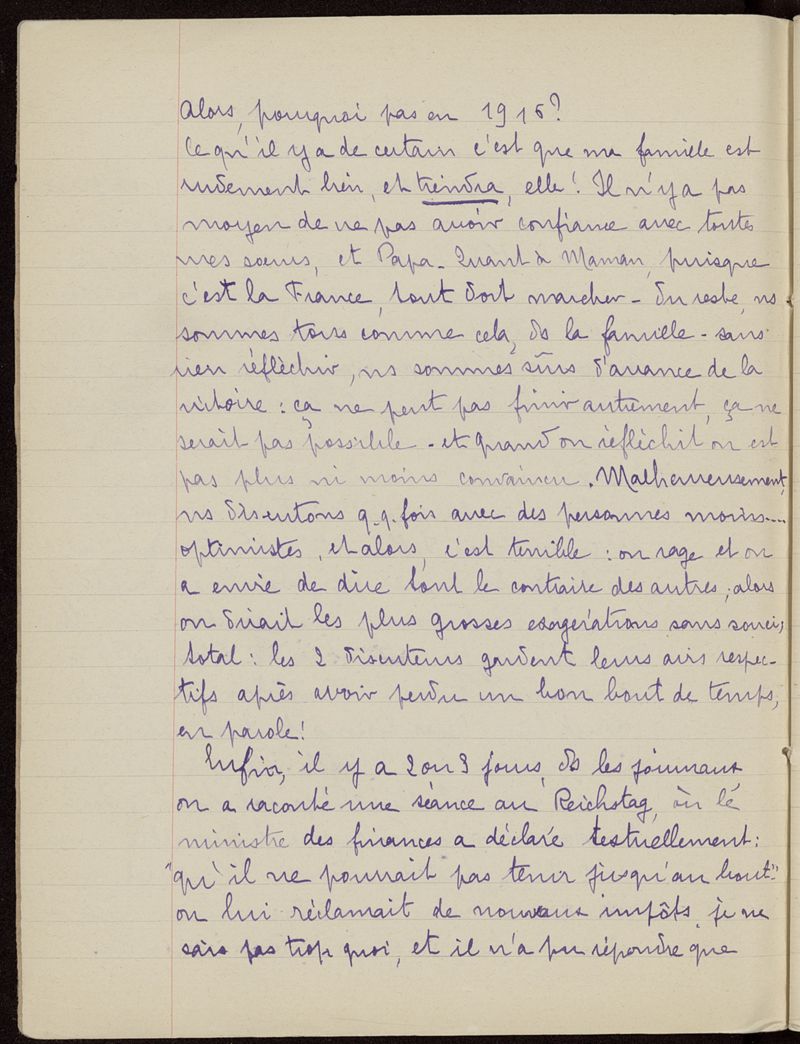 Alors, pourquoi pas en 1916?
Ce qu'il y a de certain c'est que ma famille est
rudement bien, et tiendra, elle! Il n'y a pas
moyen de ne pas avoir confiance avec toutes
mes sœurs, et Papa - Quant à Maman, puisque
c'est la France, tout doit marcher - du reste, ns
sommes tous comme cela, ds la famille - sans
rien réfléchir, ns sommes sûrs d'avance de la
victoire : ça ne peut pas finir autrement, ça ne
serait pas possible - et quand on réfléchit on est
pas plus ni moins convaincu. Malheureusement,
ns discutons q.q.fois avec des personnes moins....
optimistes, et alors, c'est terrible : on rage et on
a envie de dire tout le contraire des autres, alors
on dirait les plus grosses exagérations sans souci,
total : les 2 discuteurs gardent leurs avis respec-
tifs après avoir perdu un bon bout de temps,
en parole!
Enfin, il y a 2 ou 3 jours, ds les journaux
on a raconté une séance au Reichstag, où le
ministre des finances a déclaré textuellement :
"qu'il ne pourrait pas tenir jusqu'au bout"
on lui réclamait de nouveaux impôts, je ne
sais pas trop quoi, et il n'a pu répondre que